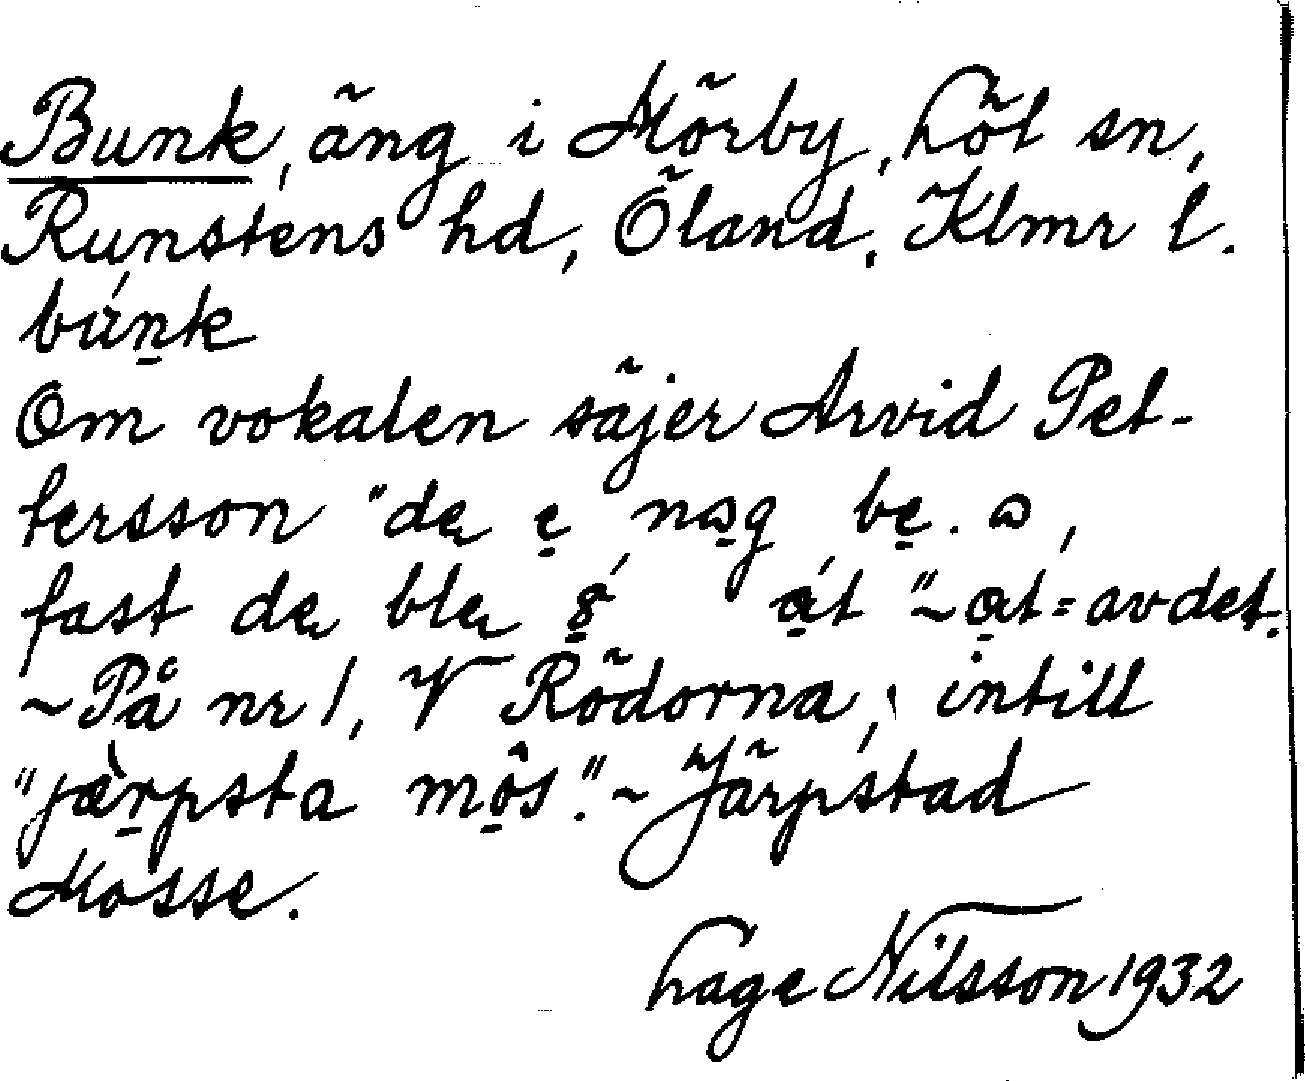 Bunk, äng i Mörby, Löt sn,
Runstens hd, Öland, Klmr l.
bu̇́n̠k
Om vokalen säjer Arvid Pet-
tersson "de e̠ nɷ̠g be̠. ɷ,
fast de ble a̠t "~ a̠t = avdet.
~ På nr 1, V Rödorna, intill
"jæ̀r̠psta mô̠s." ~ Järpstad
Mosse.
Lage Nilsson 1932